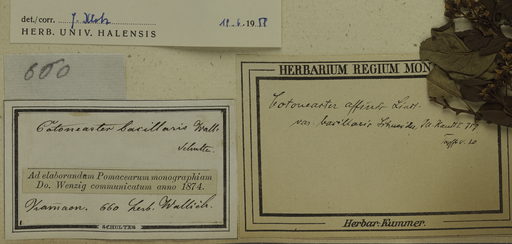 det./corr. J. Klotz 18.6.1958
HERB. UNIV. HALENSIS
660
Cotoneaster bacillaris Wall.
Schultes.
Ad elaborandam Pomacearum monographiam
Do. Wenzig communicatum anno 1874.
Kamaon. 660 herb. Wallich.
SCHULTES
HERBARIUM REGIUM MON
Cotoneaster affinis Lindl.
var. bacillaris Schneider
Herbar: Kummer.